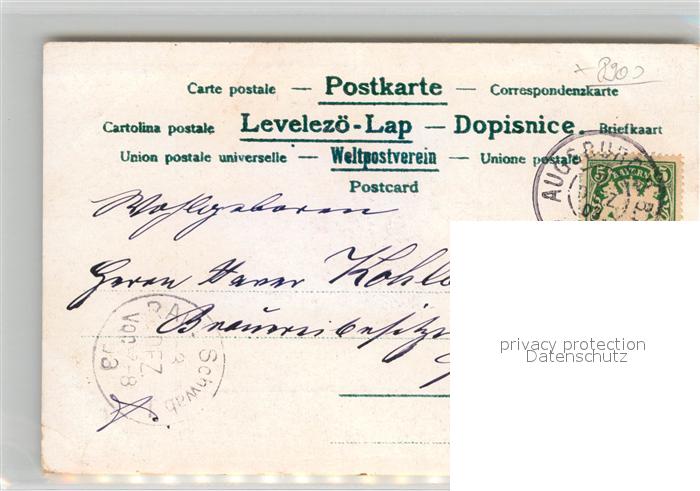 8900
Carte postale — Postkarte — Correspondenzkarte
Cartolina postale Levelezö-Lap — Dopisnice. Briefkaart
Union postale universelle — Weltpostverein — Unione postale
Postcard
AUGSBURG
5 BAYERN 5
Wohlgeboren
Herrn Xaver Kohl
Brauereibesitz
Schwab
DEZ
Vor 7-8
03
privacy protection
Datenschutz